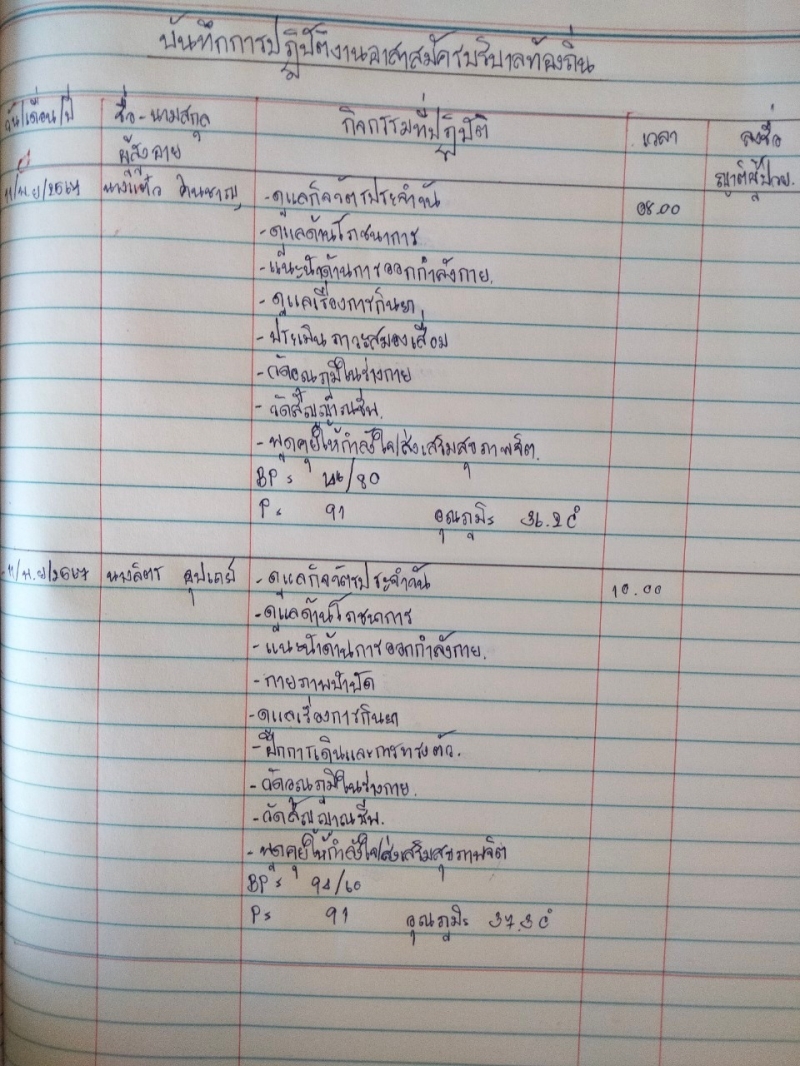 บันทึกการปฏิบัติงานอาสาสมัครบริบาลท้องถิ่น
วัน/เดือน/ปี ชื่อ-นามสกุล กิจกรรมที่ปฏิบัติ เวลา ลงชื่อ
ผู้สูงอาย ญาติผู้ป่วย.
11/มิ.ย/2567 - ดูแลกิจวัตรประจำวัน 08.00
- ดูแลด้านโภชนาการ
- แนะนำด้านการออกกำลังกาย.
- ดูแลเรื่องการกินยา
- ประเมินภาวะสมองเสื่อม
- วัดอุณภูมิในร่างกาย
- วัดสัญญาณชีพ.
- พูดคุยให้กำลังใจ/ส่งเสริมสุขภาพจิต.
BP = /80
P = 91 อุณภูมิ = 36.2 c̊
11/มิ.ย/2567 - ดูแลกิจวัตรประจำวัน 10.00
- ดูแลด้านโภชนาการ
- แนะนำด้านการออกกำลังกาย.
- กายภาพบำบัด
- ดูแลเรื่องการกินยา
- ฝึกการเดินและการทรงตัว.
- วัดอุณภูมิในร่างกาย.
- วัดสัญญาณชีพ.
- พูดคุยให้กำลังใจ/ส่งเสริมสุขภาพจิต
BP = 94/60
P = 91 อุณภูมิ = 37.3 c̊